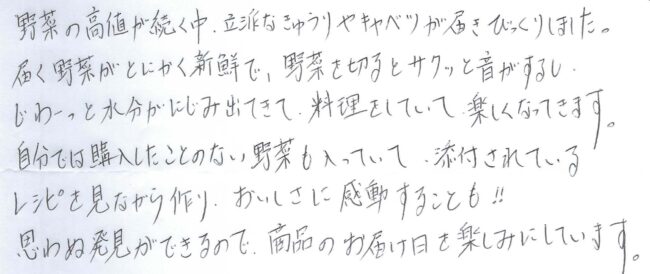 野菜の高値が続く中、立派なきゅうりやキャベツが届きびっくりしました。
届く野菜がとにかく新鮮で、野菜を切るとサクッと音がするし、
じわーっと水分がにじみ出てきて、料理をしていて、楽しくなってきます。
自分では購入したことのない野菜も入っていて、添付されている
レシピを見ながら作り、おいしさに感動することも!!
思わぬ発見ができるので、商品のお届け日を楽しみにしています。